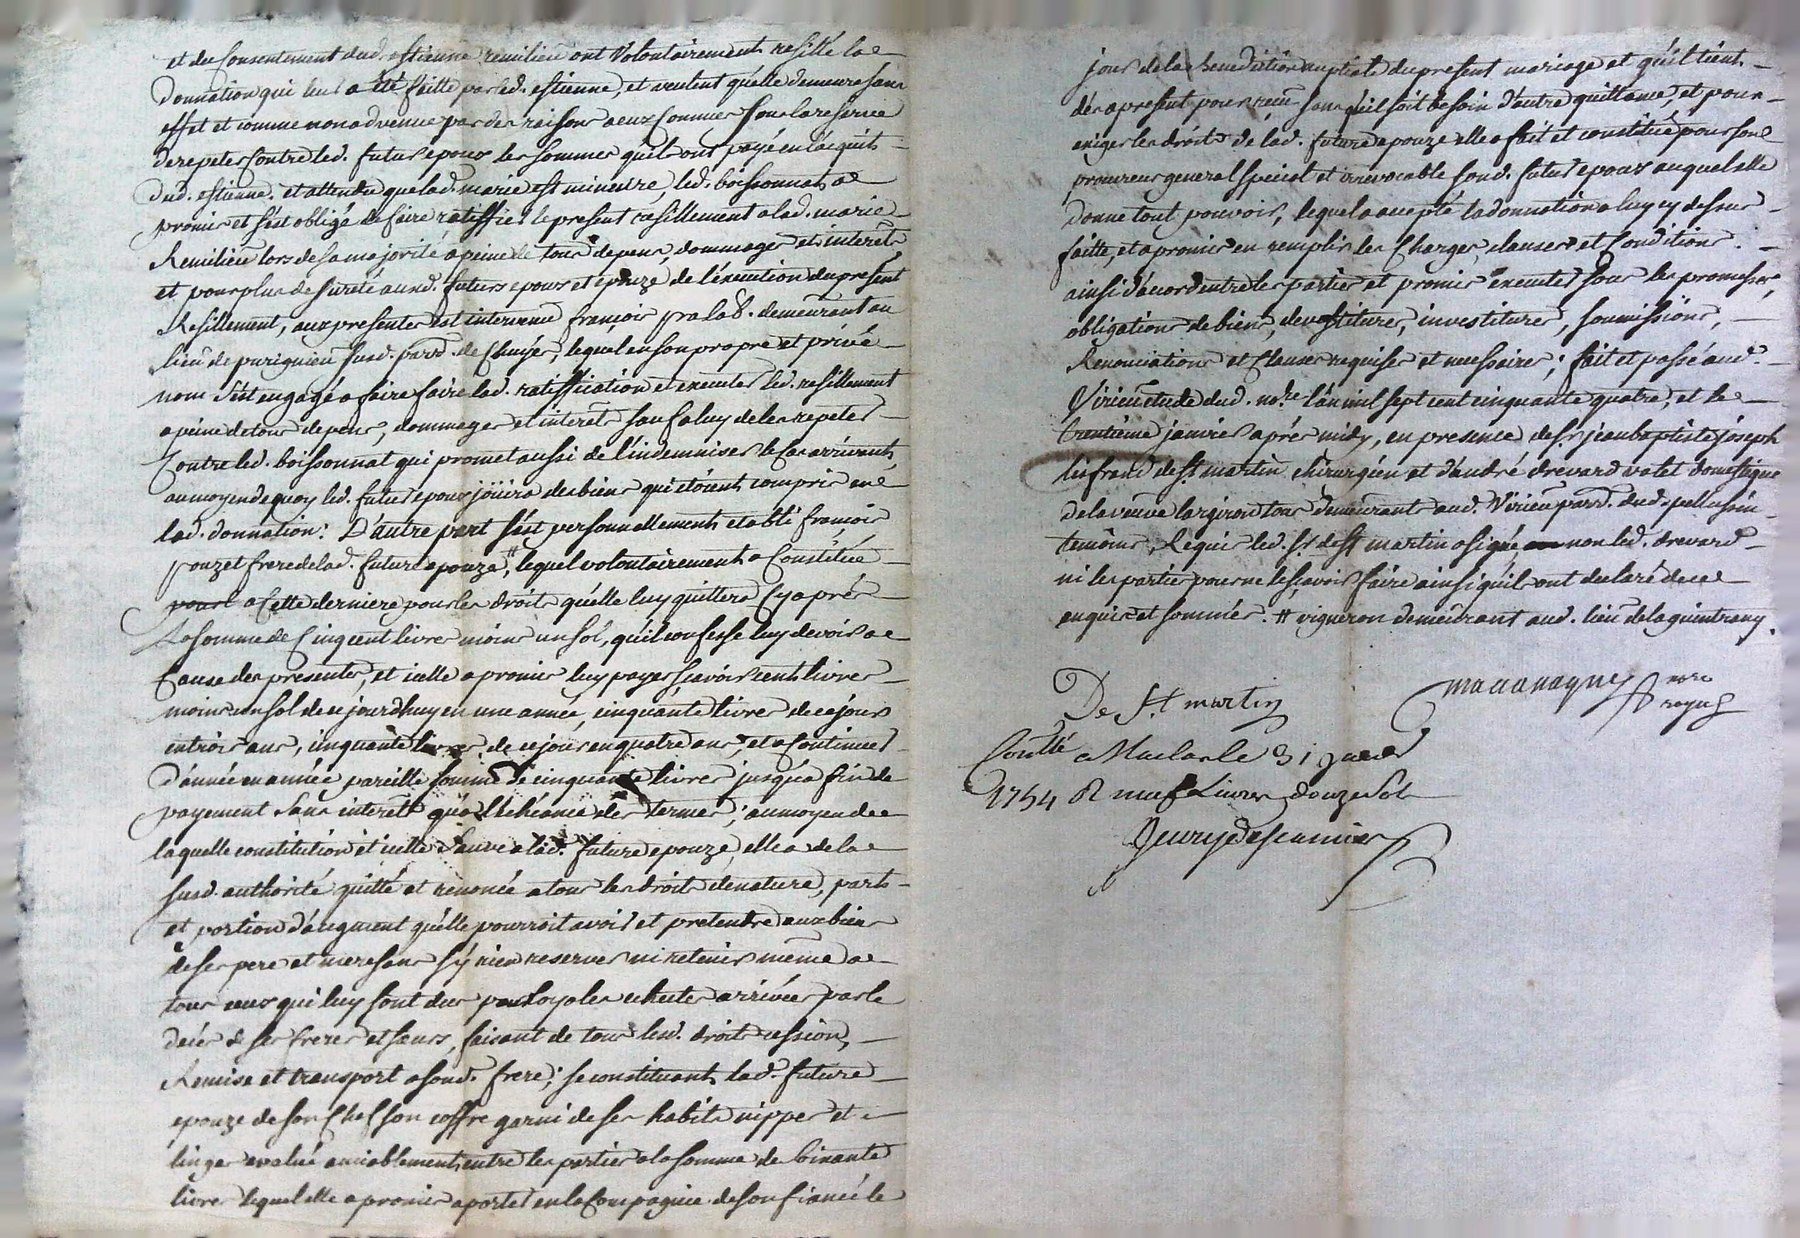 et du Consentement dud. estienne remilieu ont Volontairement resillé la
donnation qui leur a été faitte par led. estienne, et veulent qu'elle demeure sans
effet et comme non advenue par des raisons a eux Connues sous la reserve
de repeter Contre led. futur epoux les sommes qu'ils ont payé en l'acquit
dud. estienne. et attendu que lad. marie est mineure led. boissonnat a
promis et s'est obligé de faire ratiffier le present resillement a lad. marie
Remilieu lors de sa majorité a peine de tous depens, dommages et interets
et pour plus de sureté aux d. futurs epoux et epouze de l'execution du present
Resillement, aux presentes est intervenu françois demeurant au
lieu de susd. parr. de Chuyer, lequel en son propre et privé
nom s'est engagé a faire faire lad. ratiffication et executer led. resillement
a peine de tous depens, dommages et interets sauf a luy de les repeter
Contre led. boissonnat qui promet aussi de l'indemniser le Cas arrivant
au moyen de quoy led. futur epoux joüira des biens qui étoient compris en
lad. donnation: D'autre part s'est personnellement etabli françois
pouzet frere de lad. future epouze, # lequel volontairement a Constitué
a Cette derniere pour les droits qu'elle luy quittera Cy après
La somme de Cinq cent livres moins un sol, qu'il confesse luy devoir a
Cause des presentes, et icelle a promis luy payer scavoir cent livres
moins un sol de ce jourdhuy en une année, cinquante livres de ce jour
en trois ans, cinquante livres de ce jour en quatre ans, et a Continuer
d'année en année pareille somme de cinquante livres jusqu'a fin de
payement sans interets qu'a l'echéance des termes; au moyen de
laquelle constitution et icelle sauve a lad. future epouze, elle a de la
susd. authorité quitté et renoncé a tous les droits de nature, parts
et portion d'augment qu'elle pourroit avoir et pretendre aux biens
de ses pere et mere sans s'y rien reserver ni retenir même a
tous ceux qui luy sont dus par loyales echutes arrivées par le
decès de ses freres et sœurs, faisant de tous lesd. droits cession,
Remise et transport a sond. frere; se constituant lad. future
epouze de son Chef son coffre garni de ses habits nippes et
linges evalué amiablement entre les parties a la somme de
livres lequel elle a promis aporter en la Compagnie de son fiancé le
jour de la benediction nuptiale du present mariage et qu'il tient
dès a present pour reçu sans qu'il soit besoin d'autre quittance, et pour
exiger les droits de lad. future epouze elle a fait et constitué pour son
procureur general special et irrevocable sond. futur epoux auquel elle
donne tout pouvoir, lequel a accepté la donnation a luy cy dessus
faitte, et a promis en remplir les Charges, clauses et Conditions.
ainsi d'acord entre les parties et promis executer sous les promesses,
obligations de biens, devestitures, investitures, soumissions,
Renonciations et Clauses requises et necessaires; fait et passé aud.
Virieu etude dud. no.re l'an mil sept cent cinquante quatre, et le
trentième janvier après midy, en presence de sr jean baptiste joseph
lefranc de st. martin chirurgien et d'andré drevard valet domestique
de la veuve largiron tous demeurants aud. Virieu parr. dud. pellussin
temoins, Requis led. sr. de st martin a signé non led. drevard
ni les parties pour ne sçavoir faire ainsi qu'ils ont declaré de ce
enquis et sommés. # vigneron demeurant aud. lieu de la guintrany.
De St. martin
no.re
royal
Contllé a Maclas le 31 janer
1754 R neuf Livres douze sols